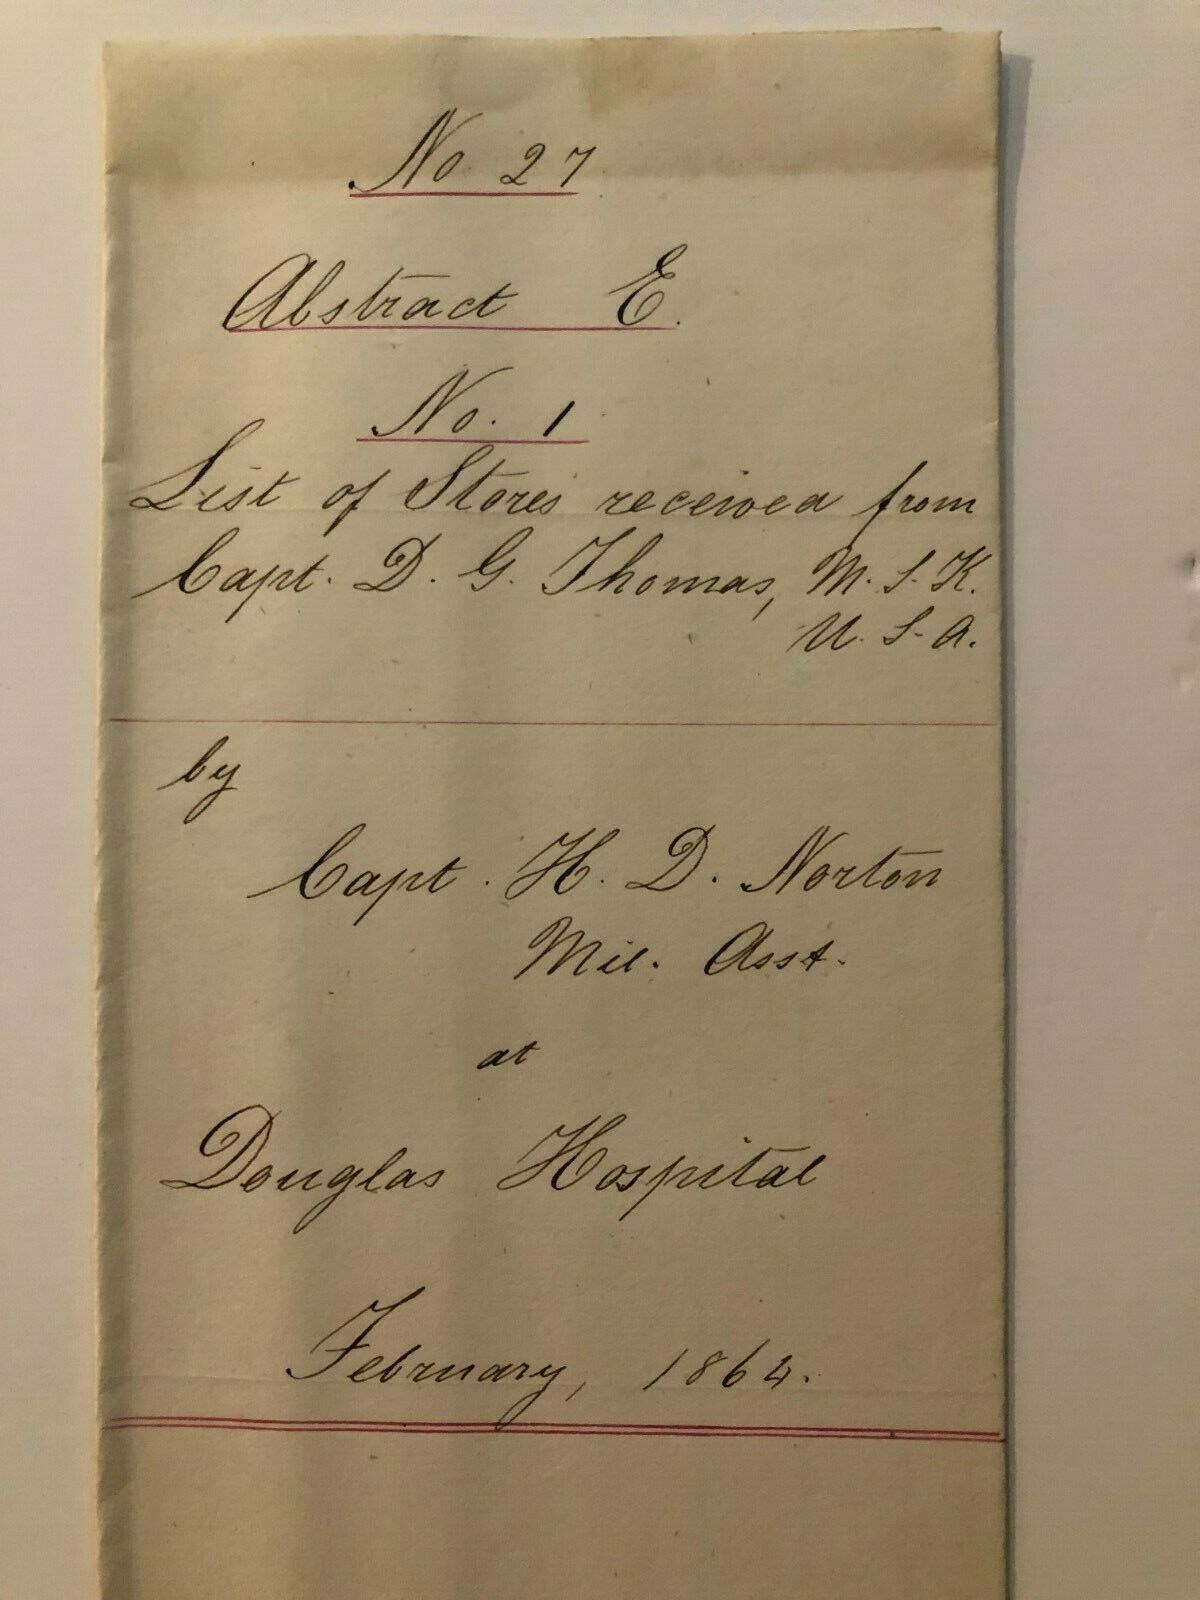 No 27
Abstract E.
No. 1
List of Stores received from
Capt. D. G. Thomas, M. S. K.
U. S. A.
by
Capt. H. D. Norton
Mil. Asst.
at
Douglas Hospital
February, 1864.